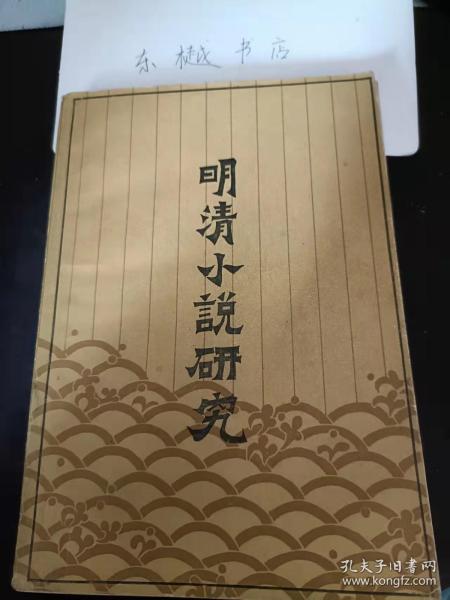 东樾书店
明清小說研究
孔夫子旧书网
www.kongfz.com